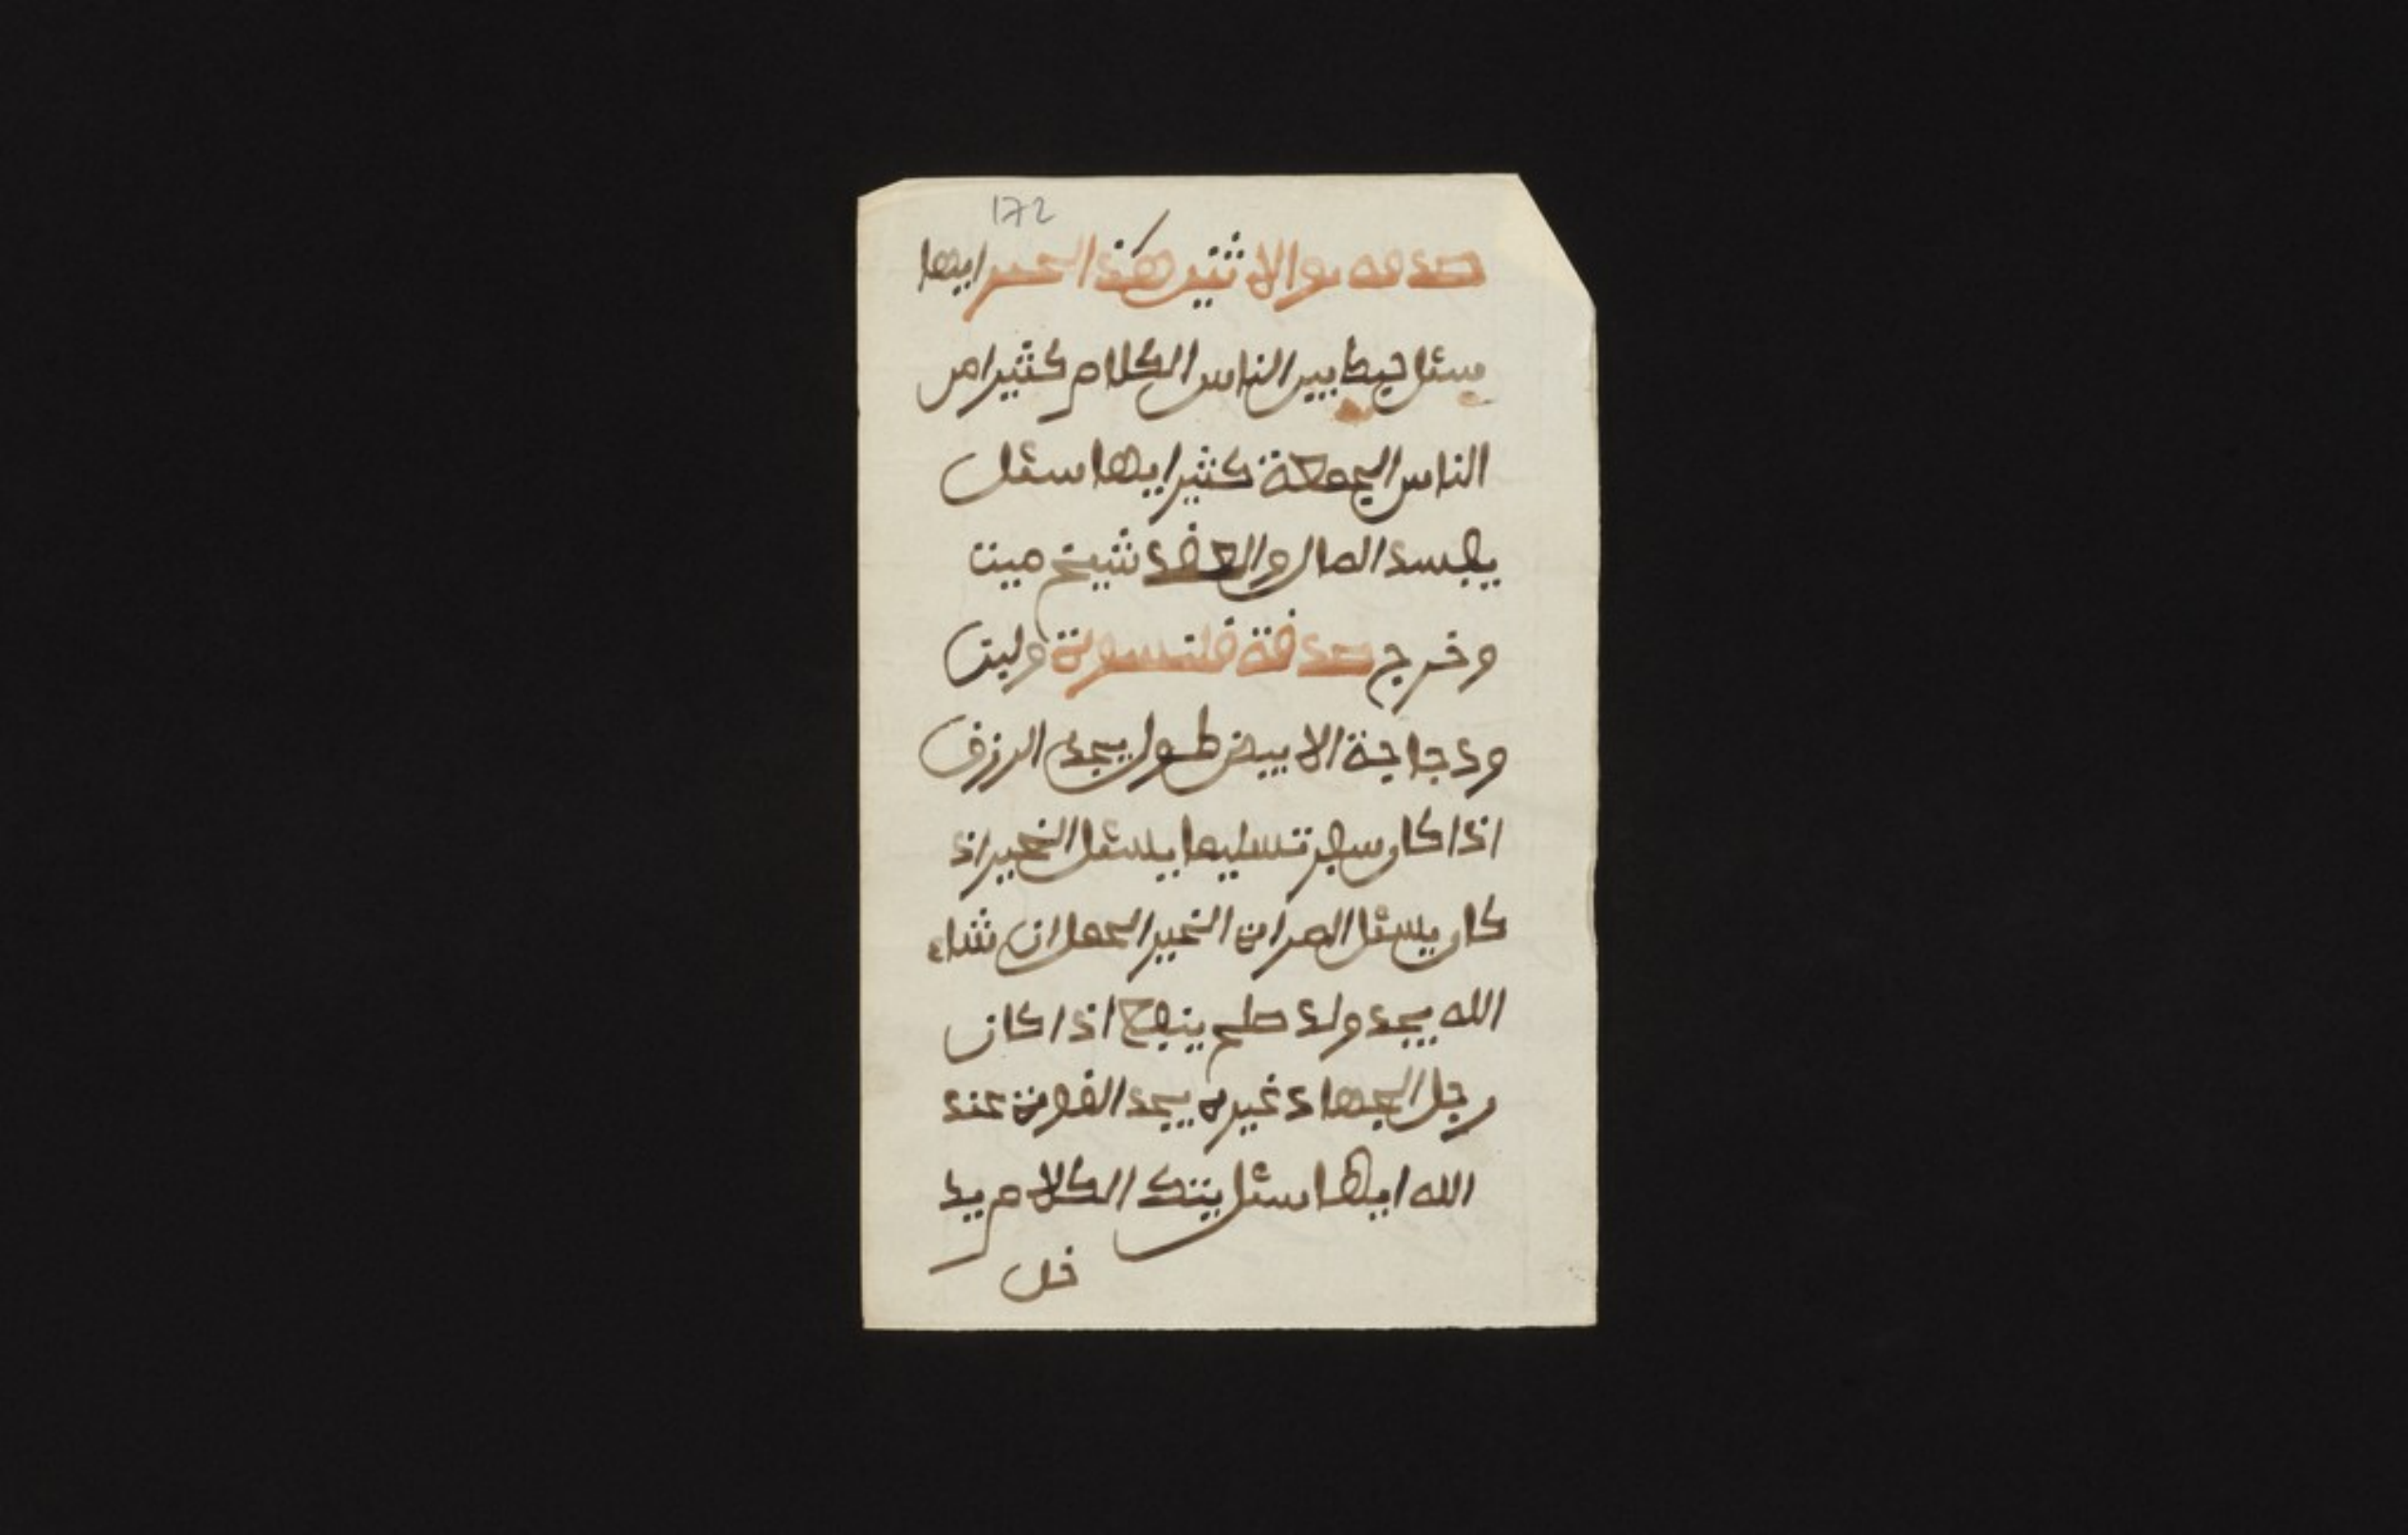 172
صدقه يوم الاثنين هكذا الخبر ايها
يسئل بين الناس الكلام كثيرا من
الناس الجمعة كثيرا يها سئل
يفسد المال والعقد شيخ ميت
وخرج صدفة قلنسوة وليت
ودجاجة الابيض طول يجد الرزق
اذا كان سفر تسليما يسئل الخير اذ
كان يسئل المراة الخير الحمل ان شاء
الله يجد ولد صلح ينفع اذا كان
رجل الجهاد غيره يجد القوة عند
الله ايها سئل الكلام يد
خل